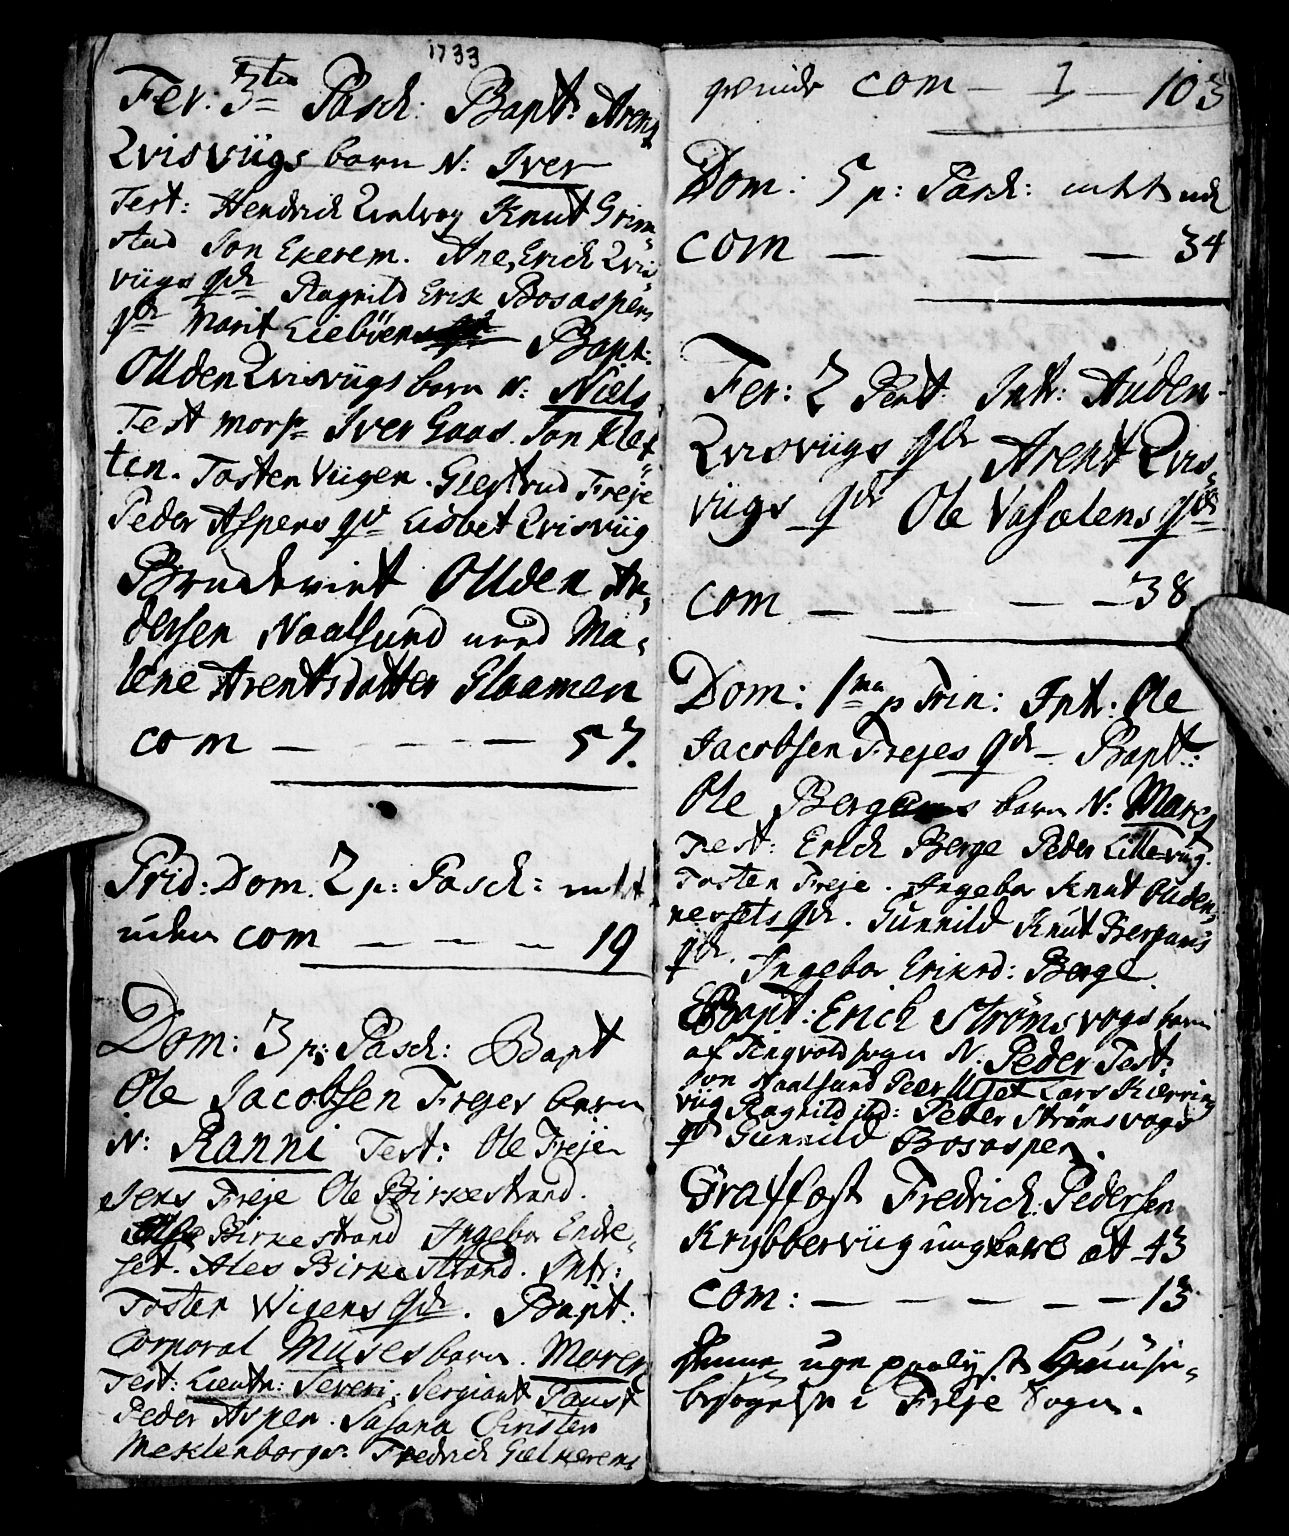 1733
Fer: 3tia Pasch: Bapt: Arent
Qvisviigs barn N: Iver
Test: Hendrich Qvalvog Knut Grim=
stad Jon Ekerem. Ane, Erich Qvis=
viigs qde Ragnild Erik Bosaspens
qde Marit Liebøens Bapt:
Olden Qvisviigs barn N: Niels
Test morf Iver Gaas. Jon Klet=
ten. Tosten Viigen. Giertrud Freje
Peder Aspens qv Lisbet Qvisviig
Brudeviet Olden An=
dersen Naalsund med Ma=
lene Arentsdatter Glaamen
com — — — 57.
Prid: Dom 2 p: Pasch:
uden com — — — 19
Dom: 3 p: Pasch: Bapt
Ole Jacobsen Frejes barn
N: Ranni Test: Ole Frejen
Jens Freje Ole Birkestrand.
Birkestrand Ingebor Endre=
set. Ales Birkestrand. Intr:
Tosten Wigens qde. Bapt:
Corporal Muses barn. Moren
Test: Lieutn: Severi, Sergiant Faust
Peder Aspen. Susana Christen
Meklenborgs. Fredrich Gielkerens
qvinde com — 1 — 103
Dom: 5 p: Pasch:
com — — — 34
Fer: 2 Pent. Intr: Auden
Qvisviigs qde Arent Qvis=
viigs qde Ole Vasalens qde
com — — — 38
Dom: 1ma p Trin: Intr. Ole
Jacobsen Frejes qde — Bapt:
Ole Bergams barn N: Maret
Test: Erich Berge Peder Lilleviig.
Tosten Freje. Ingebor Knut Ouden=
nersets qde. Gunnild Knut Bergams
qde. Ingebor Eriksd: Berge.
Bapt: Erich Strømsvogs barn
af Tingvold sogn N. Peder Test:
Jon Naalsund Peer Ulset Lars Kierring
viig Ragnild Peder Strømsvogs
qde Gunnild Bosaspen.
Graffæst Fredrich Pedersen
Krybberviig ungkarl æt 43
com: — — — — 13
uge huus=
besøgelse i Freje Sogn.